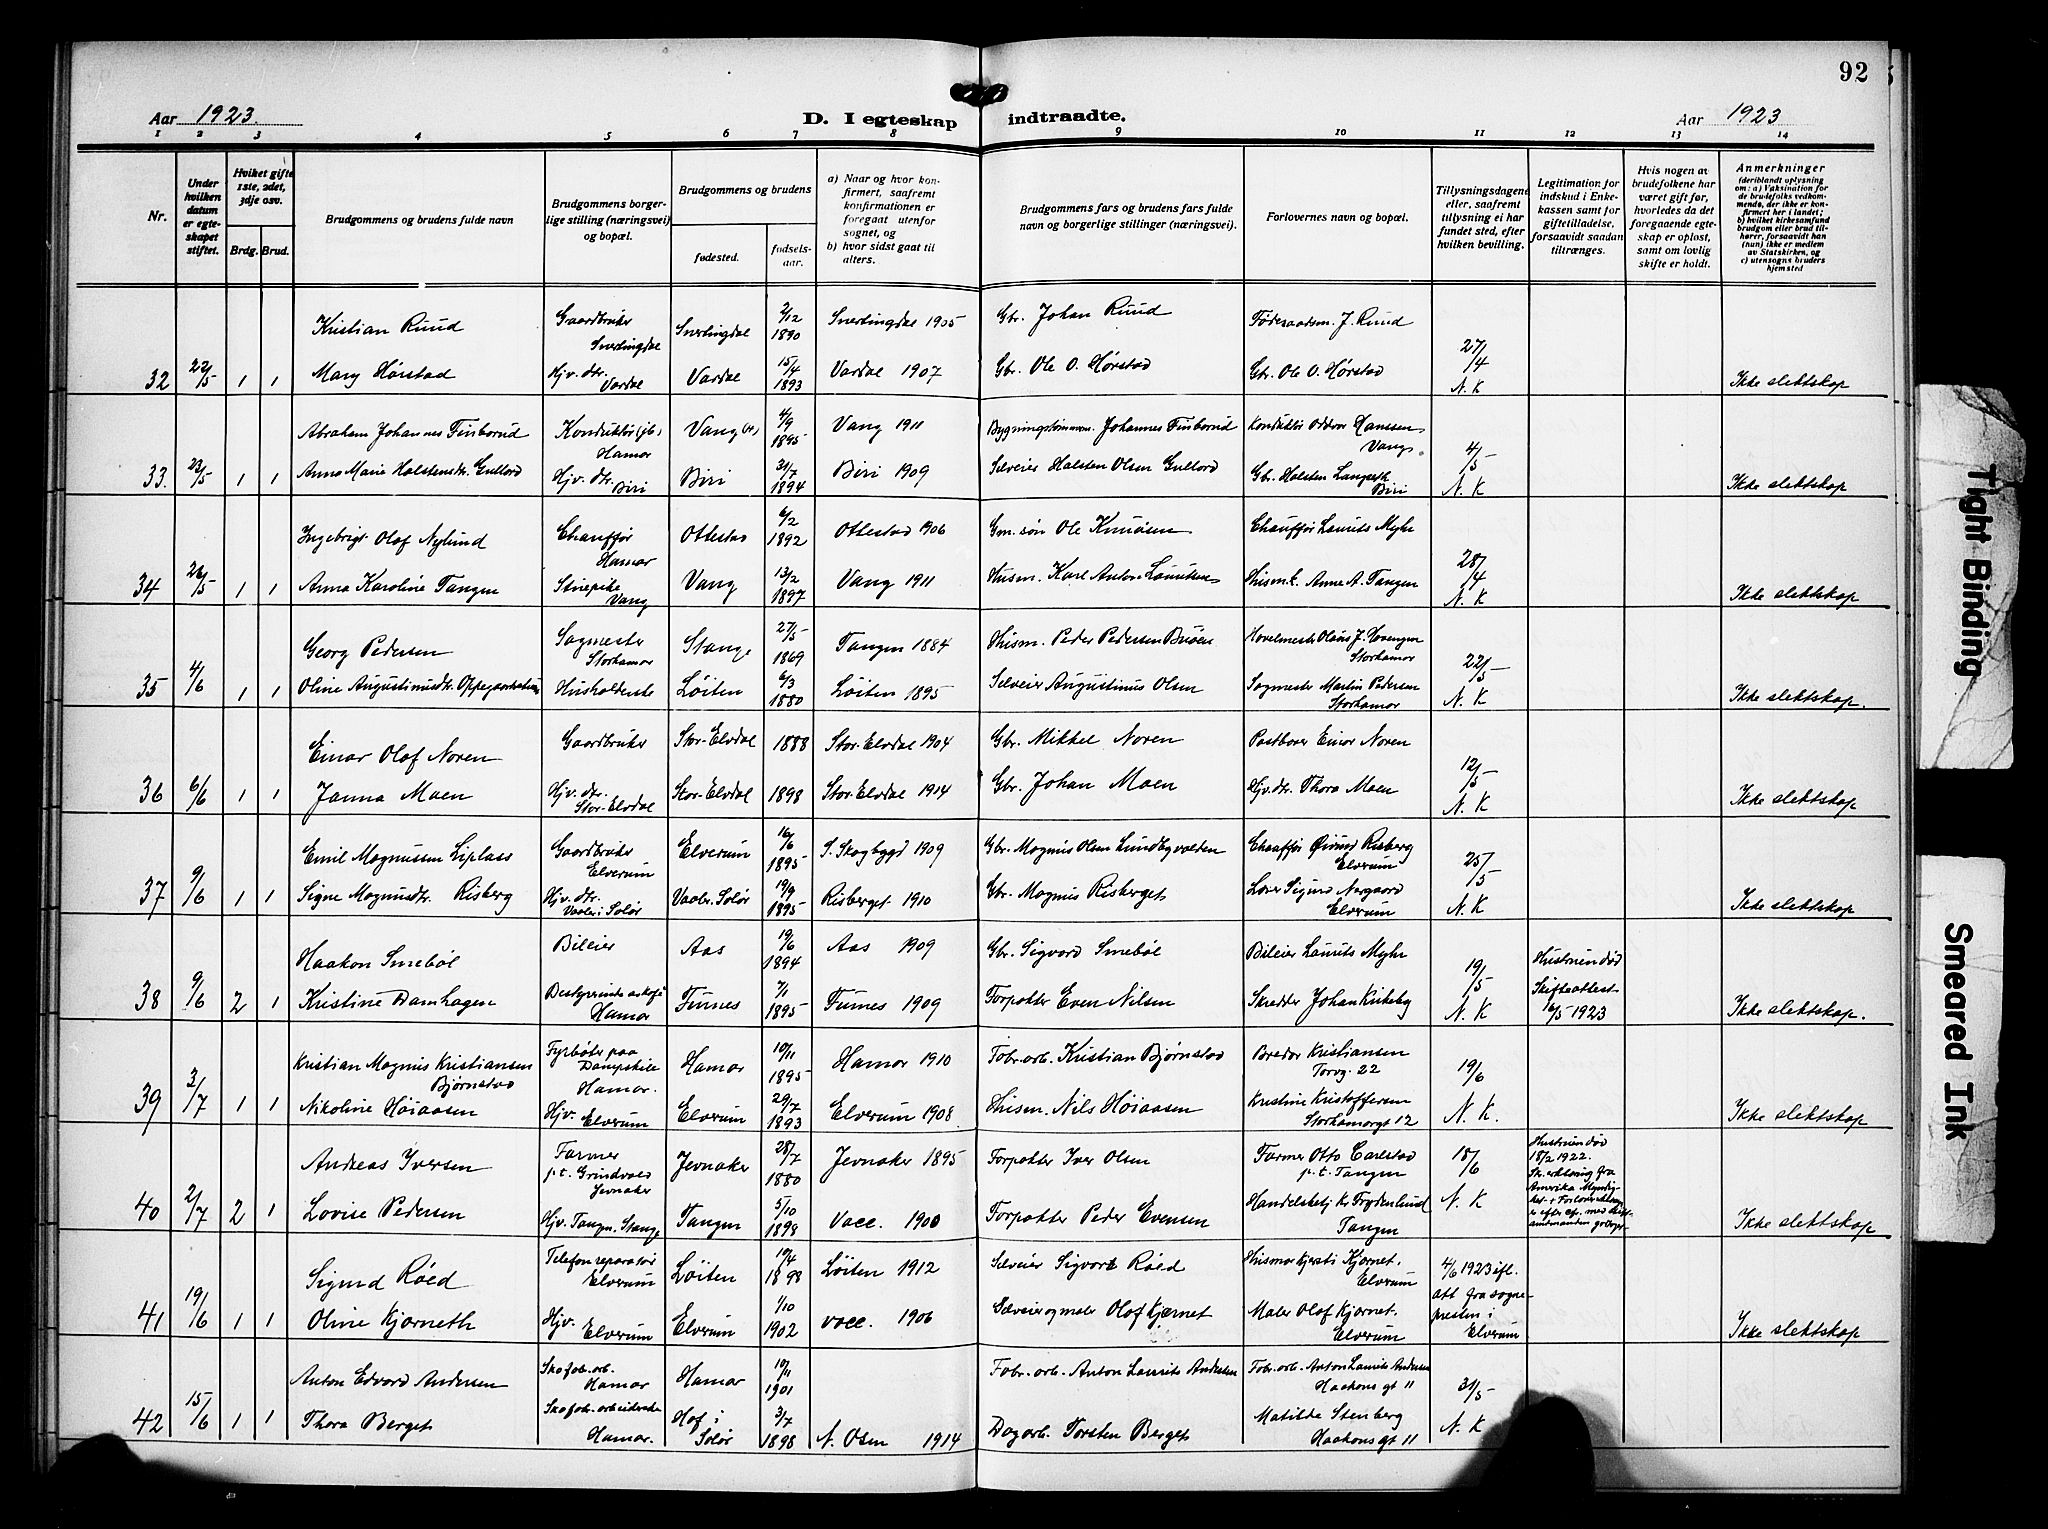 92
Aar 1923.
D. I egteskap indtraadte.
Aar 1923
1 2 3 4 5 6 7 8 9 10 11 12 13 14
Nr.
Under hvilken datum er egteskapet stiftet.
Hviket gifte 1ste, 2det, 3dje osv.
Brdg. Brud.
Brudgommens og brudens fulde navn
Brudgommens borgerlige stilling (næringsvei) og bopæl.
Brudgommens og brudens
fødested.
fødselsaar.
a) Naar og hvor konfirmert, saafremt konfirmationen er foregaat utenfor sognet, og
b) hvor sidst gaat til alters.
Brudgommens fars og brudens fars fulde navn og borgerlige stillinger (næringsvei).
Forlovernes navn og bopæl.
Tillysningsdagene eller, saafremt tillysning ei har fundet sted, efter hvilken bevilling.
Legitimation for indskud i Enkekassen samt for giftetilladelse, forsaavidt saadan tiltrænges.
Hvis nogen av brudefolkene har været gift før, hvorledes da det foregaaende egteskap er opløst, samt om lovlig skifte er holdt.
Anmerkninger
(deriblandt oplysning om: a) Vaksination for de brudefolks vedkommende, der ikke er konfirmert her i landet; b) hvilket kirkesamfund brudgom eller brud tilhører, forsaavidt han (hun) ikke er medlem av Statskirken, og c) utensogns bruders hjemsted
Kristian Ruud Gaardbruker Snertingdal Snertingdal 2/12 1890 Snertingdal 1905 Gbr. Johan Ruud J. Ruud 27/4
32 22/5 1 1 Mary Hørstad Hjv. dtr. Vardal Vardal 15/4 1893 Vardal 1907 Gbr. Ole O. Hørstad Gbr. Ole O. Hørstad N. K Ikke slektskap
Abraham Johannes Finborud Konduktør (jb.) Hamar Vang 4/9 1895 Vang 1911 Johannes Finborud Konduktør Oddvar Hanssen Vang 4/5
33. 23/5 1 1 Anna Marie Halstensdr. Gullord Hjv. dtr. Biri Biri 21/7 1894 Biri 1909 Selveier Halsten Olsen Gullord Gbr. Halsten Biri N. K Ikke slektskap
Ingebrigt Olaf Nylund Chauffør Hamar Ottestad 6/2 1892 Ottestad 1906 Gm. søn Ole Knudsen Chauffør Laurits Myhr 28/4
34 26/5 1 1 Anna Karoline Tangen Vang Vang 13/2 1897 Vang 1911 Husm. Karl Anton Lauritsen Husm.k. Anne A. Tangen N. K Ikke slektskap
Georg Pedersen Sagmester Storhamar Stange 27/5 1869 Tangen 1884 Husm. Peder Pedersen Høvelmester Olaus J. Storhamar 22/5
35 4/6 1 1 Oline Augustinusdtr. Husholderske Løiten 6/3 1880 Løiten 1895 Selveier Augustinus Olsen Sagmester Martin Pedersen Storhamar N. K Ikke slektskap.
Einar Olaf Noren Gaardbruker Stor-Elvdal 1888 Stor-Elvdal 1904 Gbr. Mikkel Noren Einar Noren 12/5
36 6/6 1 1 Janna Moen Hjv. dtr. Stor-Elvdal Stor-Elvdal 1898 Stor-Elvdal 1914 Gbr. Johan Moen Hjv. dtr. Thora Moen N. K Ikke slektskap
Emil Magnussen Liplass Gaardbruker Elverum Elverum 16/6 1895 S. Skogbygd 1909 Gbr. Magnus Olsen Lundbyvolden Chauffør Øivind Risberg Elverum 25/5
37 9/6 1 1 Signe Magnusdtr. Risberg Hjv. dtr. Vaaler i Solør Vaaler, Solør 19/9 1895 Risberget 1910 Gbr. Magnus Risberget Lærer Sigurd Nergaard Elverum N. K Ikke slektskap
Haakon Smebøl Bileier Aas 19/6 1894 Aas 1909 Gbr. Sigvard Smebøl Bileier Laurits Myhr 19/5 Hustruen død
38 9/6 2 1 Kristine Damhagen Hamar Furnes 7/1 1895 Furnes 1909 Forpakter Even Nilsen Skredder Johan Kirkeby N. K Skifteattest 16/5 1923 Ikke slektskap.
Kristian Magnus Kristiansen Bjørnstad Fyrbøter paa Hamar. Hamar 10/11 1895 Hamar 1910 Fabr. arb. Kristian Bjørnstad Kristiansen Torvg. 22 19/6
39 3/7 1 1 Nikoline Høiaasen Hjv. Elverum Elverum 29/7 1893 Elverum 1908. Husm. Nils Høiaasen Kristine Kristoffersen Storhamargt 12 N. K. Ikke slektskap
Andreas Iversen Farmer p. t. Grindvold Jevnaker Jevnaker 28/7 1880 Jevnaker 1895 Forpakter Iver Olsen Farmer Otto Carlstad p. t. Tangen 18/6 Hustruen død 18/2 1922.
40 2/7 2 1 Lovise Pedersen Hjv. Tangen, Stange Tangen 5/10 1898 Vacc. 1900 Forpakter Peder Evensen Handelsbetj. Kr. Frydenlund Tangen N. K Ikke slektskap
Sigurd Røed Telefonreparatør Elverum Løiten 10/4 1898 Løiten 1912 Selveier Sigvart Røed Kjersti Kjernet, Elverum 4/6 1923 ifl. att fra sognepresten i Elverum
41 19/6 1 1 Oline Kjerneth Hjv. Elverum Elverum 1/10 1902 vacc. 1906 Selveier og maler Olaf Kjernet Maler Olaf Kjernet, Elverum Ikke slektskap
Anton Edvard Andersen Skofab. arb. Hamar Hamar 10/11 1901 Fabr. arb. Anton Laurits Andersen Fabr. arb. Anton Laurits Andersen Haakons gt 11 31/5
42 15/6 1 1 Thora Berget Skofab. arbeiderske Hamar. Hof i Solør 3/7 1898 N. Osen 1914 Dagarb. Torsten Berget Matilde Stenberg Haakons gt 11 N. K
Tight Binding
Smeared Ink